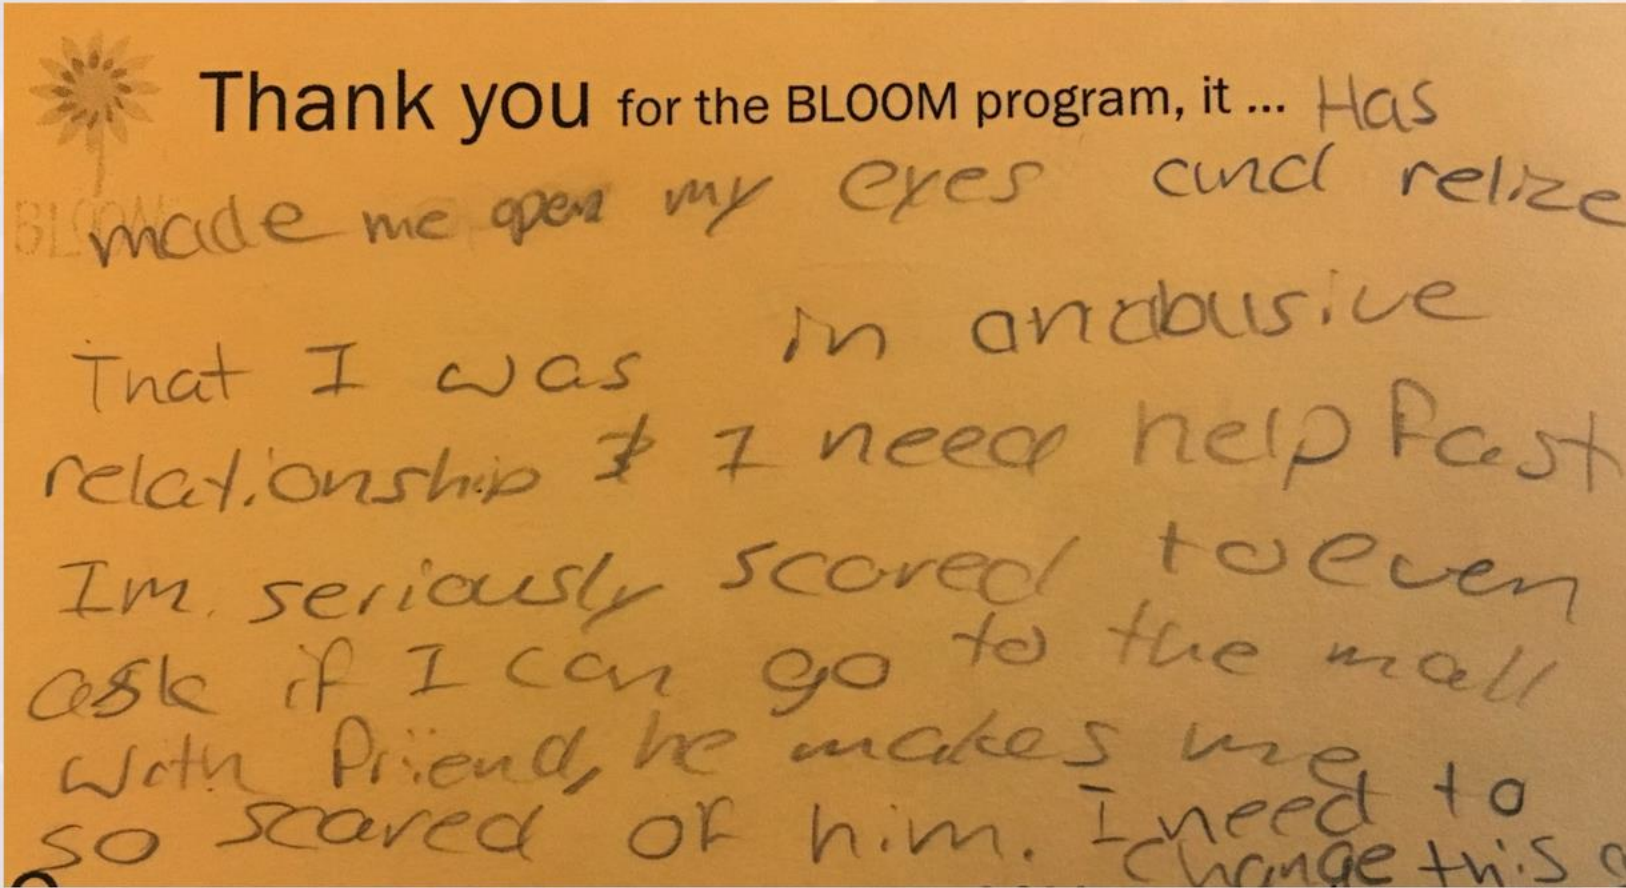 Thank you for the BLOOM program, it ... Has
BLOOM
made me open my eyes and relize
That I was in an abusive
relationship & I need help fast
Im seriously scared to even
ask if I can go to the mall
with friend, he makes me
so scared of him. I need to
change this